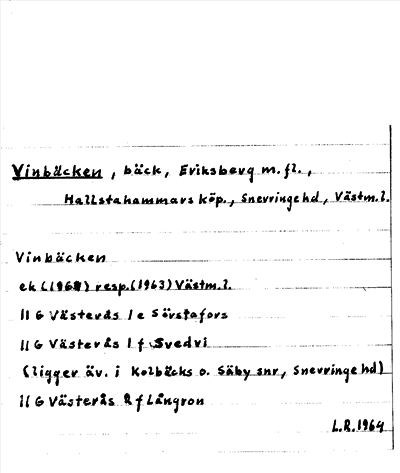 Vinbäcken, bäck, Eriksberg m.fl.,
Hallstahammars köp., Snevringe hd, Västm.l.
Vinbäcken
ek (1964) resp. (1963) Västm.l.
11 G Västerås 1 e Sörstafors
11 G Västerås 1 f Svedvi
(ligger äv. i Kolbäcks o. Säby snr, Snevringe hd)
11 G Västerås 2 f Långron
L.R. 1964